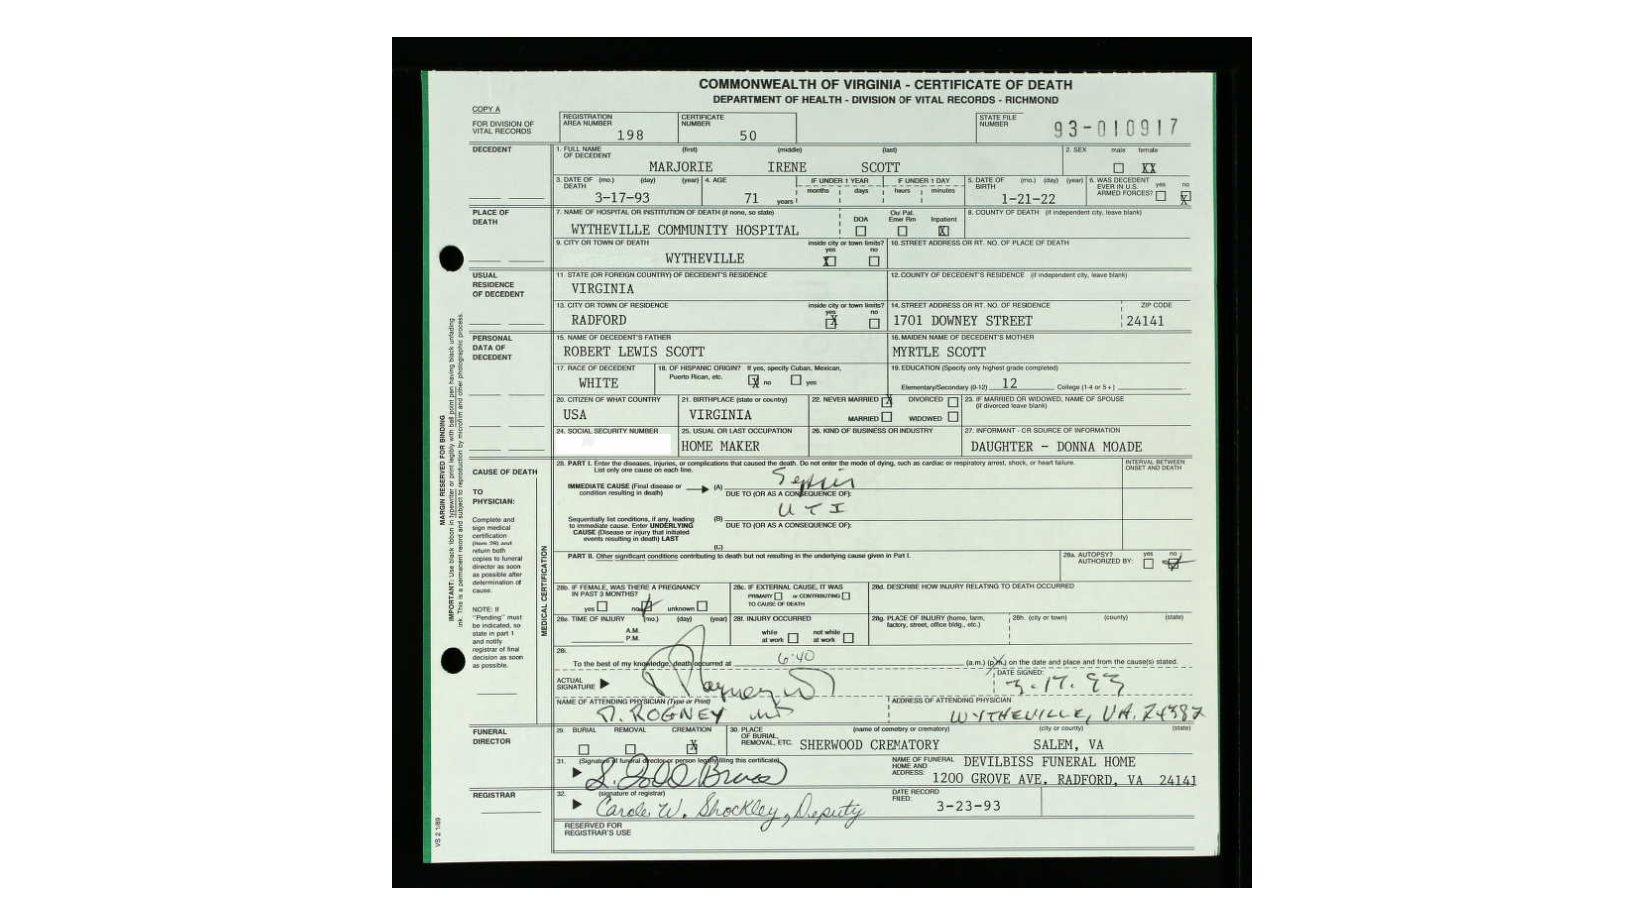 COMMONWEALTH OF VIRGINIA - CERTIFICATE OF DEATH
DEPARTMENT OF HEALTH - DIVISION OF VITAL RECORDS - RICHMOND
COPY A
FOR DIVISION OF VITAL RECORDS
REGISTRATION AREA NUMBER 198
CERTIFICATE NUMBER 50
STATE FILE NUMBER 93-010917
DECEDENT
1. FULL NAME OF DECEDENT (first) (middle) (last)
MARJORIE IRENE SCOTT
2. SEX male female XX
3. DATE OF DEATH (mo.) (day) (year) 3-17-93
4. AGE 71 years
IF UNDER 1 YEAR months days
IF UNDER 1 DAY hours minutes
5. DATE OF BIRTH (mo.) (day) (year) 1-21-22
6. WAS DECEDENT EVER IN U.S. ARMED FORCES? yes no X
PLACE OF DEATH
7. NAME OF HOSPITAL OR INSTITUTION OF DEATH (if none, so state)
WYTHEVILLE COMMUNITY HOSPITAL
DOA Out Pat. Emer Rm Inpatient X
8. COUNTY OF DEATH (if independent city, leave blank)
9. CITY OR TOWN OF DEATH
WYTHEVILLE
inside city or town limits? yes X no
10. STREET ADDRESS OR RT. NO. OF PLACE OF DEATH
USUAL RESIDENCE OF DECEDENT
11. STATE (OR FOREIGN COUNTRY) OF DECEDENT'S RESIDENCE
VIRGINIA
12. COUNTY OF DECEDENT'S RESIDENCE (if independent city, leave blank)
13. CITY OR TOWN OF RESIDENCE
RADFORD
inside city or town limits? yes X no
14. STREET ADDRESS OR RT. NO. OF RESIDENCE
1701 DOWNEY STREET
ZIP CODE
24141
PERSONAL DATA OF DECEDENT
15. NAME OF DECEDENT'S FATHER
ROBERT LEWIS SCOTT
16. MAIDEN NAME OF DECEDENT'S MOTHER
MYRTLE SCOTT
17. RACE OF DECEDENT
WHITE
18. OF HISPANIC ORIGIN? If yes, specify Cuban, Mexican, Puerto Rican, etc.
X no yes
19. EDUCATION (Specify only highest grade completed)
Elementary/Secondary (0-12) 12 College (1-4 or 5+)
20. CITIZEN OF WHAT COUNTRY
USA
21. BIRTHPLACE (state or country)
VIRGINIA
22. NEVER MARRIED X DIVORCED
MARRIED WIDOWED
23. IF MARRIED OR WIDOWED, NAME OF SPOUSE (if divorced leave blank)
24. SOCIAL SECURITY NUMBER
25. USUAL OR LAST OCCUPATION
HOME MAKER
26. KIND OF BUSINESS OR INDUSTRY
27. INFORMANT - OR SOURCE OF INFORMATION
DAUGHTER - DONNA MOADE
CAUSE OF DEATH
TO PHYSICIAN:
Complete and sign medical certification (item 28) and return both copies to funeral director as soon as possible after determination of cause.
NOTE: If "Pending" must be indicated, so state in part 1 and notify registrar of final decision as soon as possible.
MEDICAL CERTIFICATION
28. PART I. Enter the diseases, injuries, or complications that caused the death. Do not enter the mode of dying, such as cardiac or respiratory arrest, shock, or heart failure.
List only one cause on each line.
INTERVAL BETWEEN ONSET AND DEATH
IMMEDIATE CAUSE (Final disease or condition resulting in death) (A) Sepsis
DUE TO (OR AS A CONSEQUENCE OF):
Sequentially list conditions, if any, leading to immediate cause. Enter UNDERLYING CAUSE (Disease or injury that initiated events resulting in death) LAST
(B) UTI
DUE TO (OR AS A CONSEQUENCE OF):
(C)
PART II. Other significant conditions contributing to death but not resulting in the underlying cause given in Part I.
28a. AUTOPSY? AUTHORIZED BY: yes no
28b. IF FEMALE, WAS THERE A PREGNANCY IN PAST 3 MONTHS?
yes no unknown
28c. IF EXTERNAL CAUSE, IT WAS
PRIMARY or CONTRIBUTING
TO CAUSE OF DEATH
28d. DESCRIBE HOW INJURY RELATING TO DEATH OCCURRED
28e. TIME OF INJURY (mo.) (day) (year)
A.M.
P.M.
28f. INJURY OCCURRED
while at work not while at work
28g. PLACE OF INJURY (home, farm, factory, street, office bldg., etc.)
28h. (city or town) (county) (state)
28i.
To the best of my knowledge, death occurred at 6:40 (a.m.) (p.m.) on the date and place and from the cause(s) stated.
ACTUAL SIGNATURE
DATE SIGNED: 3-17-93
NAME OF ATTENDING PHYSICIAN (Type or Print)
ROGNEY MD
ADDRESS OF ATTENDING PHYSICIAN
WYTHEVILLE, VA. 24382
FUNERAL DIRECTOR
29. BURIAL REMOVAL CREMATION X
30. PLACE OF BURIAL, REMOVAL, ETC. (name of cemetery or crematory) (city or county) (state)
SHERWOOD CREMATORY SALEM, VA
31. (Signature of funeral director or person legally filing this certificate)
NAME OF FUNERAL HOME AND ADDRESS: DEVILBISS FUNERAL HOME
1200 GROVE AVE. RADFORD, VA 24141
REGISTRAR
32. (signature of registrar)
Carole W. Shockley, Deputy
DATE RECORD FILED: 3-23-93
RESERVED FOR REGISTRAR'S USE
MARGIN RESERVED FOR BINDING
VS 2 1/89